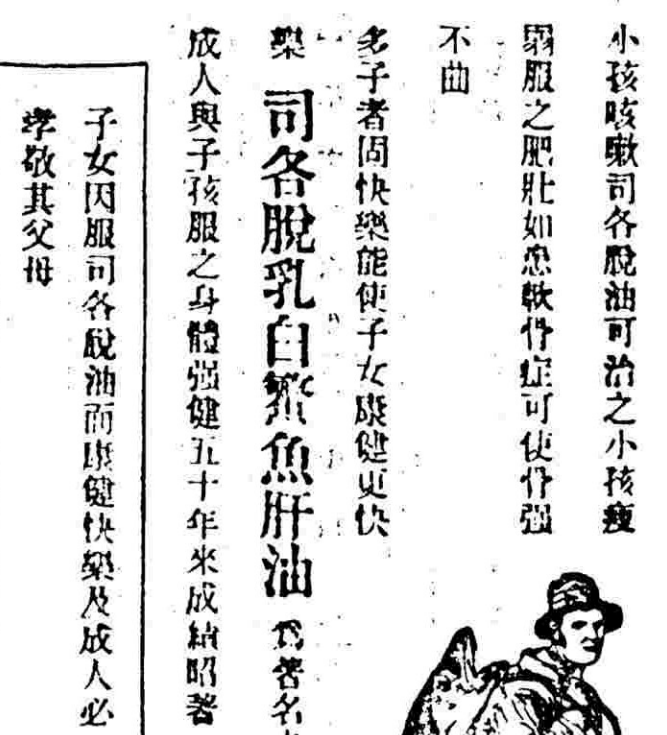 小孩咳嗽司各脫油可治之小孩瘦
弱服之肥壯如患軟骨症可使骨强
不曲
多子者固快樂能使子女康健更快
樂 司各脫乳白鰵魚肝油 爲著名
成人與子孩服之身體强健五十年來成績昭著
子女因服司各脫油而康健快樂及成人必
孝敬其父母